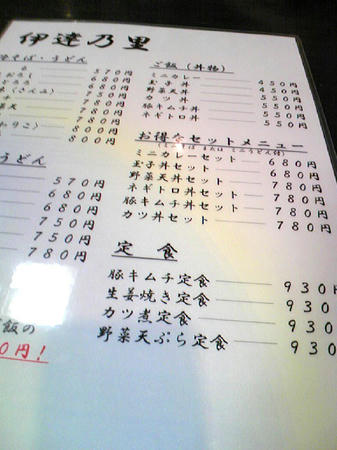 伊達乃里
そば・うどん
570円
680円
680円
750円
780円
800円
800円
うどん
570円
680円
680円
750円
750円
780円
飯の
0円!
ご飯(丼物)
ミニカレー 450円
玉子丼 450円
野菜天丼 550円
カツ丼 550円
豚キムチ丼 550円
ネギトロ丼 550円
お得なセットメニュー
(ミニそばまたはミニうどん付)
ミニカレーセット 680円
玉子丼セット 680円
野菜天丼セット 780円
ネギトロ丼セット 780円
豚キムチ丼セット 780円
カツ丼セット 780円
定食
豚キムチ定食 930円
生姜焼き定食 930
カツ煮定食 930
野菜天ぷら定食 930